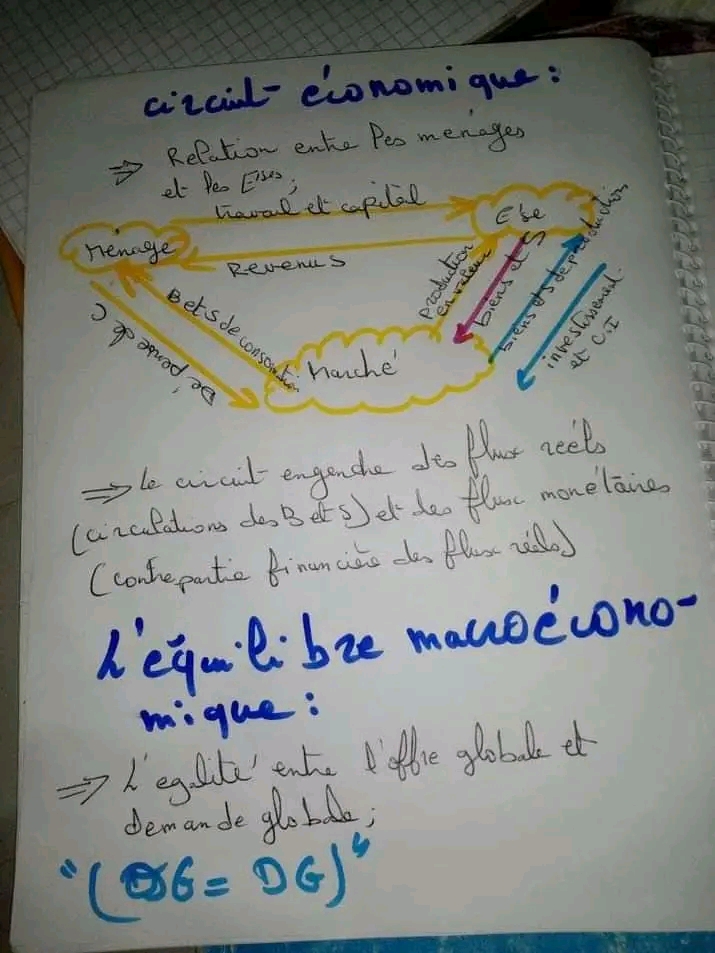 circuit économique :
⇒ Relation entre les ménages
et les Eses ;
travail et capital
Ese
Ménage
Revenus
Dépense de C
B et S de consomtion
Marché
Production
en valeur
biens et S
biens et S de production
investissement
et C.I
⇒ Le circuit engendre des flux réels
(circulations des B et S) et des flux monétaires
(contrepartie financière des flux réels)
L'équilibre macroécono-
mique :
⇒ L'egalité entre l'offre globale et
demande globale ;
"(OG = DG)"